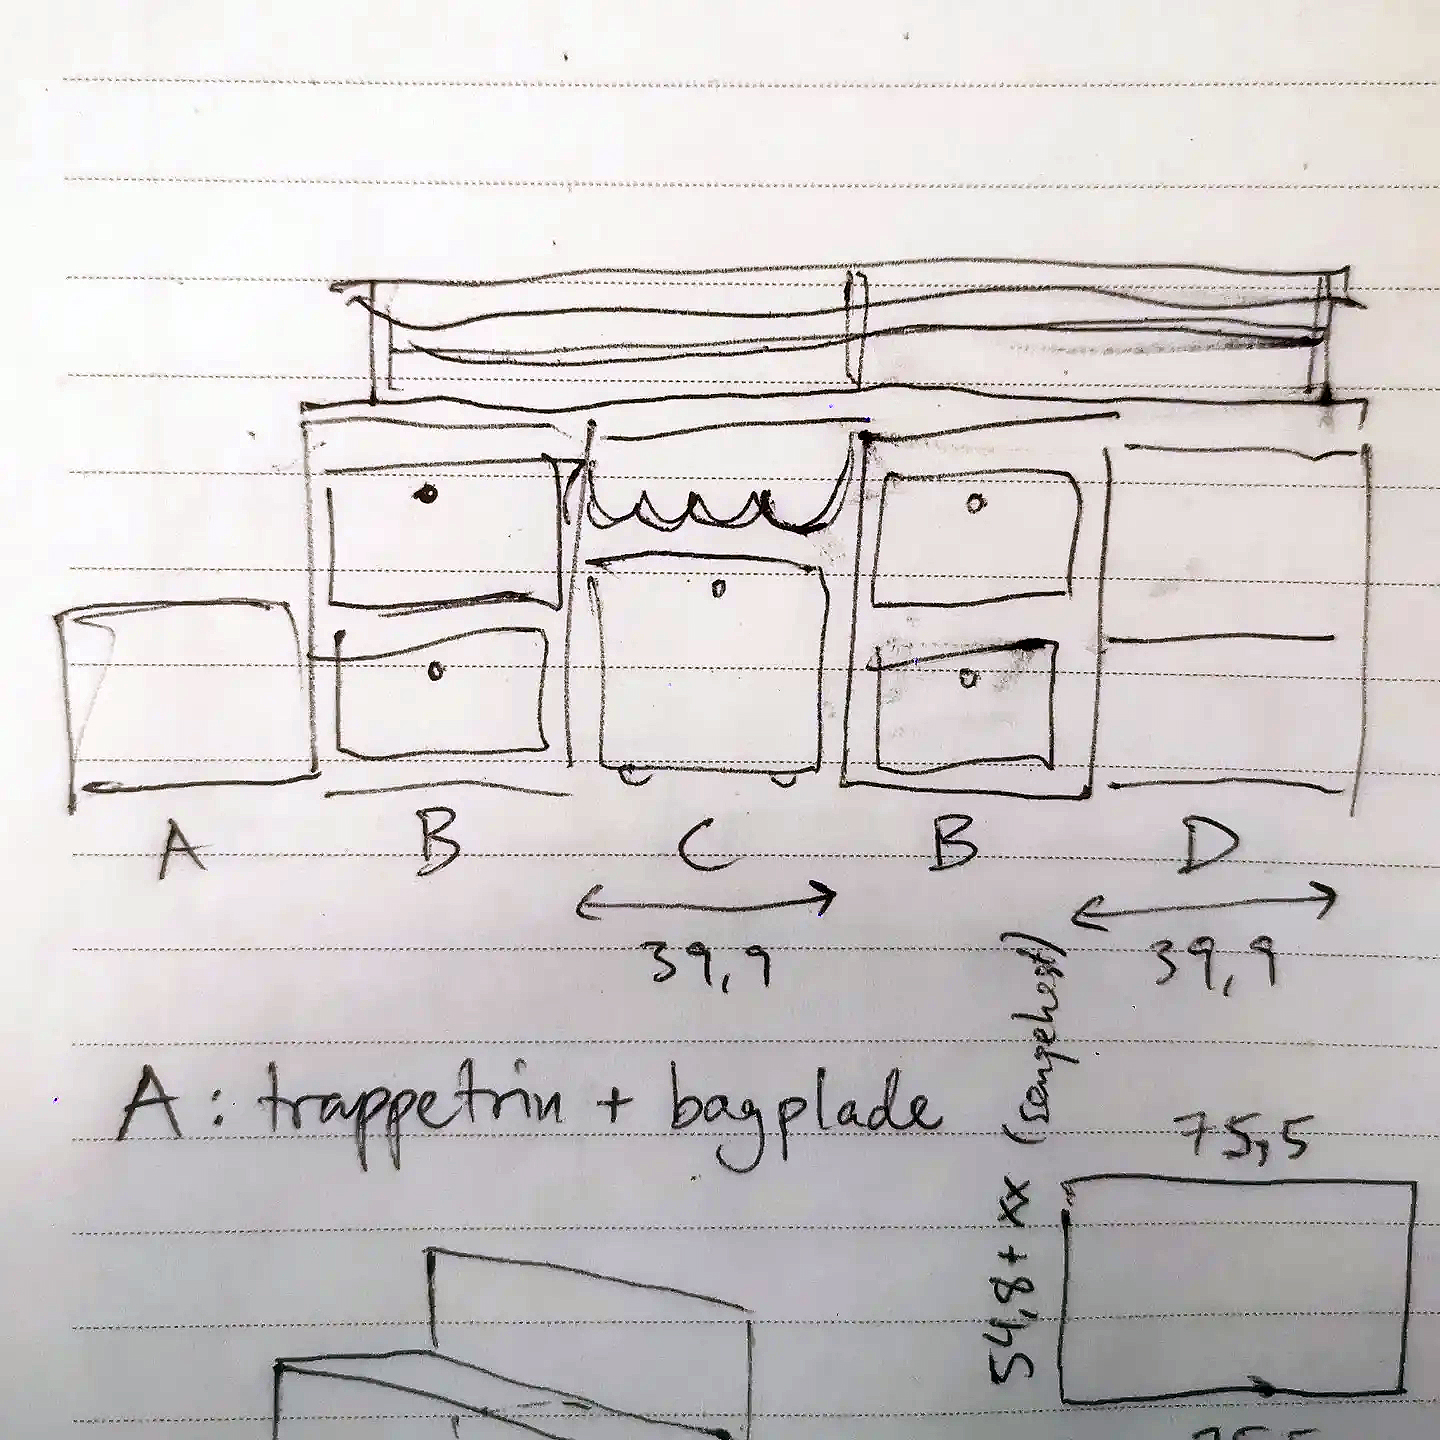 A B C B D
39,9 39,9
A: trappetrin + bagplade
54,8 + xx (sengehest)
75,5